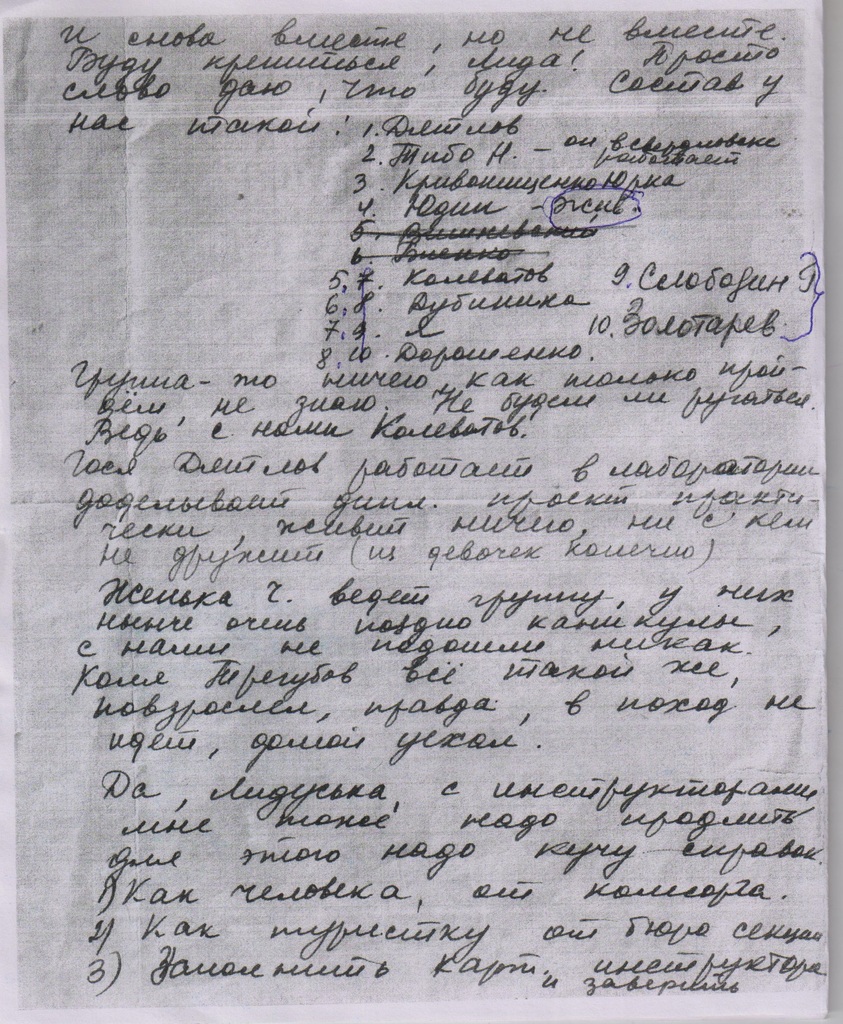 И снова вместе, но не вместе.
Буду крепиться, Лида! Просто
слово даю, что буду. Состав у
нас такой: 1. Дятлов
2. Тибо Н. - он в Свердловске
работает
3. Кривонищенко Юрка
4. Юдин - жив.
5. Вишневский
6. Биенко
5. 7. Колеватов 9. Слободин Р
6. 8. Дубинина
7. 9. Я 10. Золотарев.
8. 10. Дорошенко.
Группа-то ничего, как только прой-
дём, не знаю. Не будем ли ругаться.
Ведь с нами Колеватов.
Гося Дятлов работает в лаборатории
доделывает дипл. проект практи-
чески, живет ничего, ни с кем
не дружит (из девочек конечно)
Женька Ч. ведет группу, у них
нынче очень поздно каникулы,
с нами не подошли никак.
Коля Трегубов всё такой же,
повзрослел, правда, в поход не
идет, домой уехал.
Да, Лидуська, с инструкторами
мне тоже надо продлить
для этого надо кучу справок.
1) Как человека, от комсорга.
2) Как туристку от бюро секции
3) Заполнить карт. инструктора
и заверить